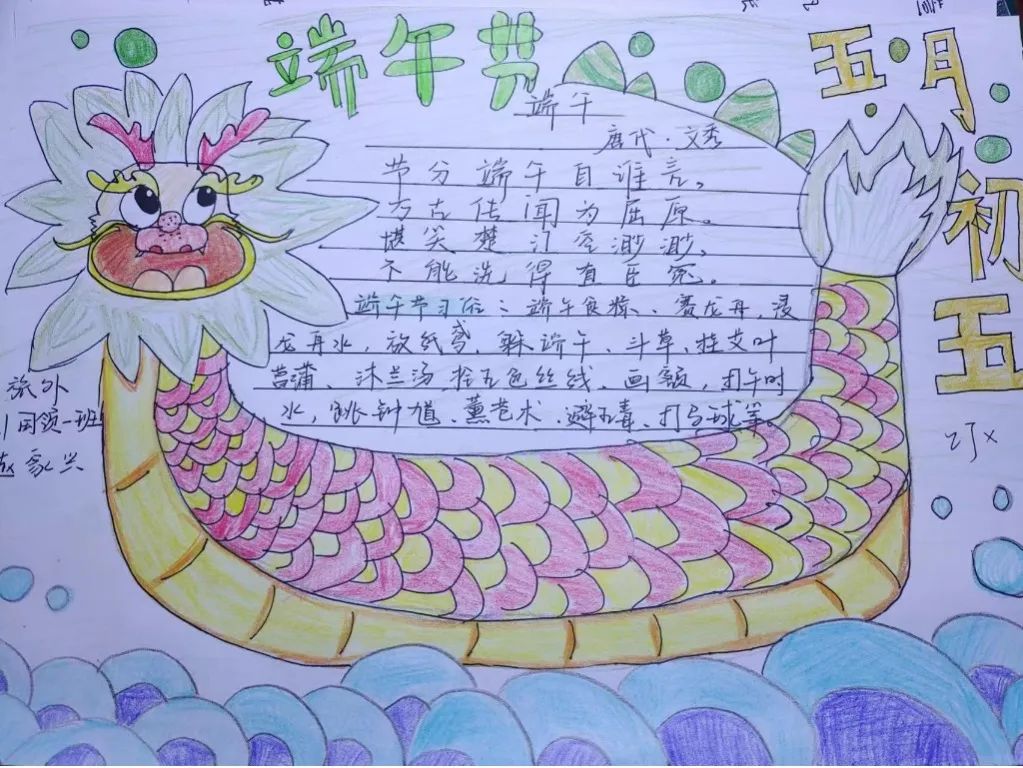 端午节
五月初五
端午
唐代·文秀
节分端午自谁言,
万古传闻为屈原。
堪笑楚江空渺渺,
不能洗得直臣冤。
端午节习俗:端午食粽、赛龙舟,浸
龙舟水,放纸鸢、躲端午、斗草、挂艾叶
菖蒲、沐兰汤、拴五色丝线、画额,打午时
水,跳钟馗、薰苍术、避五毒、打马球等。
旅外
国领一班
家兴